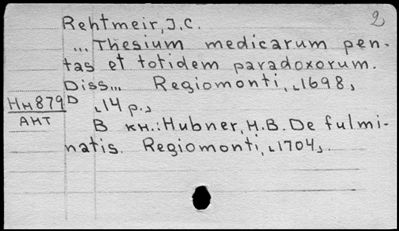 2
Rehtmeir, J.C.
... Thesium medicarum pen-
tas et totidem paradoxorum.
Diss... Regiomonti, 1698,
Нн879 D 14 p.
АНТ
В кн.: Hubner, H.B. De fulmi-
natis. Regiomonti, 1704.